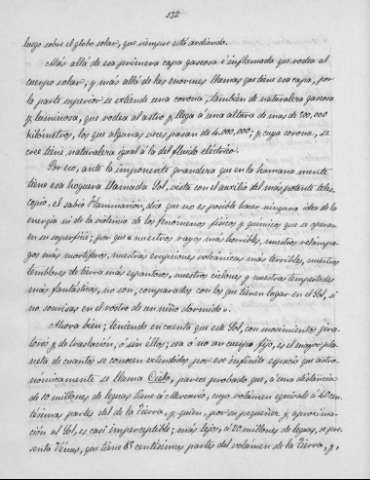 132
luego sobre el globo solar, que siempre está ardiendo.
Más allá de esa primera capa gaseosa é inflamada que rodea al
cuerpo solar, y más allá de las enormes llamas que tiene esa capa, por
la parte superior se extiende una corona, tambien de naturaleza gaseosa
y luminosa, que rodea al astro y llega á una altura de mas de 700,000
kilómetros, los que algunas veces pasan de 4.000,000; y cuya corona, se
cree tiene naturaleza igual á la del fluido eléctrico.
Por eso, ante la imponente grandeza que en la humana mente
tiene esa hoguera llamada Sol, vista con el auxilio del más potente teles-
copio, el sabio Flammarion, dice que no es posible hacer ninguna idea de la
energía ni de la violencia de los fenómenos físicos y químicos que se operan
en su superficie; por que «nuestros rayos más horribles, nuestros relámpa-
gos más mortíferos, nuestras erupciones volcánicas más terribles, nuestros
temblores de tierra más espantosos, nuestros ciclones y nuestras tempestades
más fantásticas, no son, comparados con los que tienen lugar en el Sol, si
no sonrisas en el rostro de un niño dormido».
Ahora bien; teniendo en cuenta que este Sol, con movimientos gira-
torios y de traslación, ó sin ellos; sea ó no un cuerpo fijo, es el mayor pla-
neta de cuantos se conocen extendidos por ese infinito espacio que astro-
nómicamente se llama Cielo, parece probado que, á una distancia
de 10 millones de leguas tiene á Mercurio, cuyo volúmen equivale á
centésimas partes del de la Tierra, y quien, por su pequeñez y aproxima-
ción al Sol, es casi imperceptible; más lejos, á 20 millones de leguas, se pre-
senta Vénus, que tiene 87 centésimas partes del volúmen de la Tierra, y,